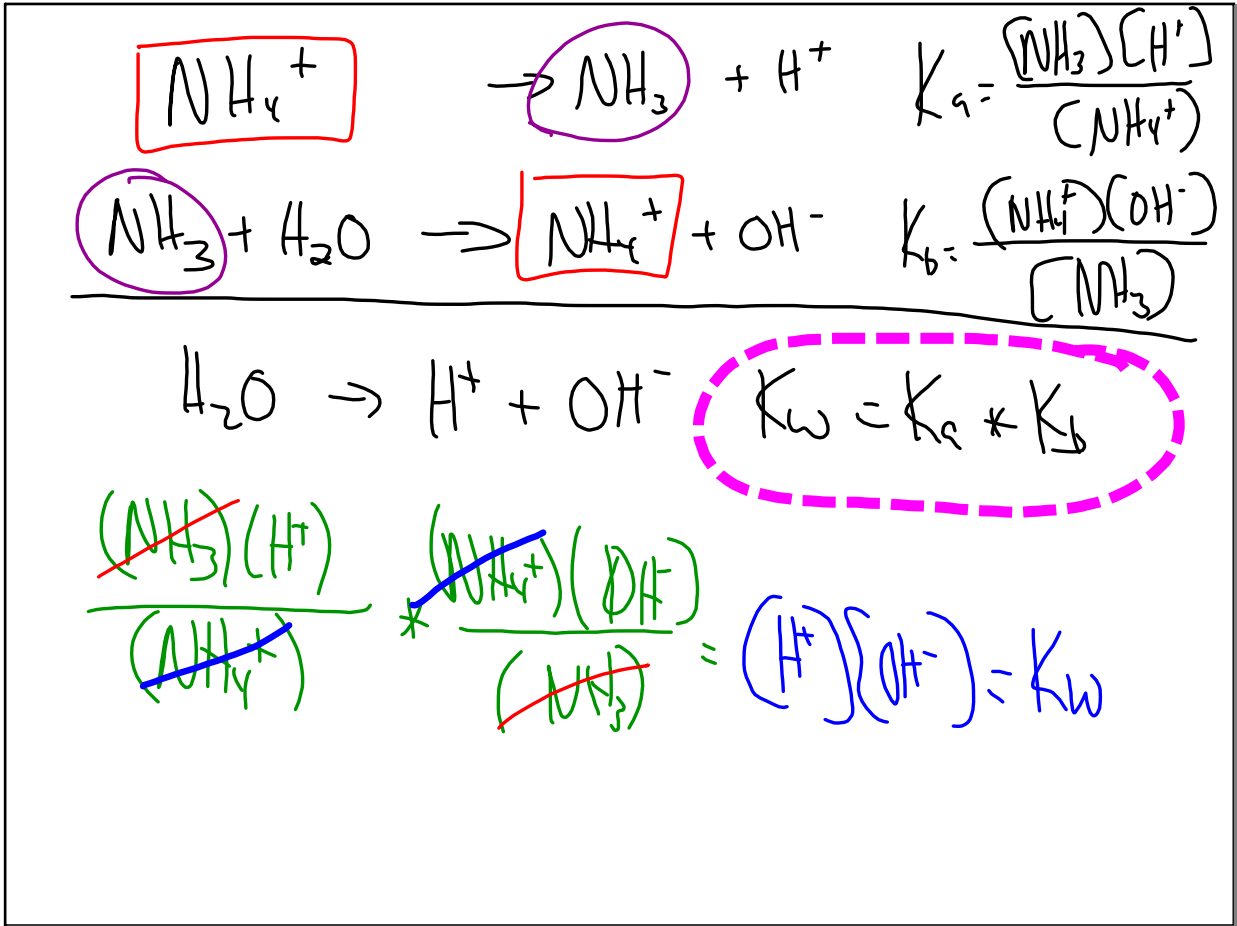 NH₄⁺ → NH₃ + H⁺ Ka = [NH₃][H⁺] / (NH₄⁺)
NH₃ + H₂O → NH₄⁺ + OH⁻ Kb = (NH₄⁺)(OH⁻) / [NH₃]
H₂O → H⁺ + OH⁻ Kw = Ka * Kb
(NH₃)(H⁺) / (NH₄⁺) * (NH₄⁺)(OH⁻) / (NH₃) = (H⁺)(OH⁻) = Kw